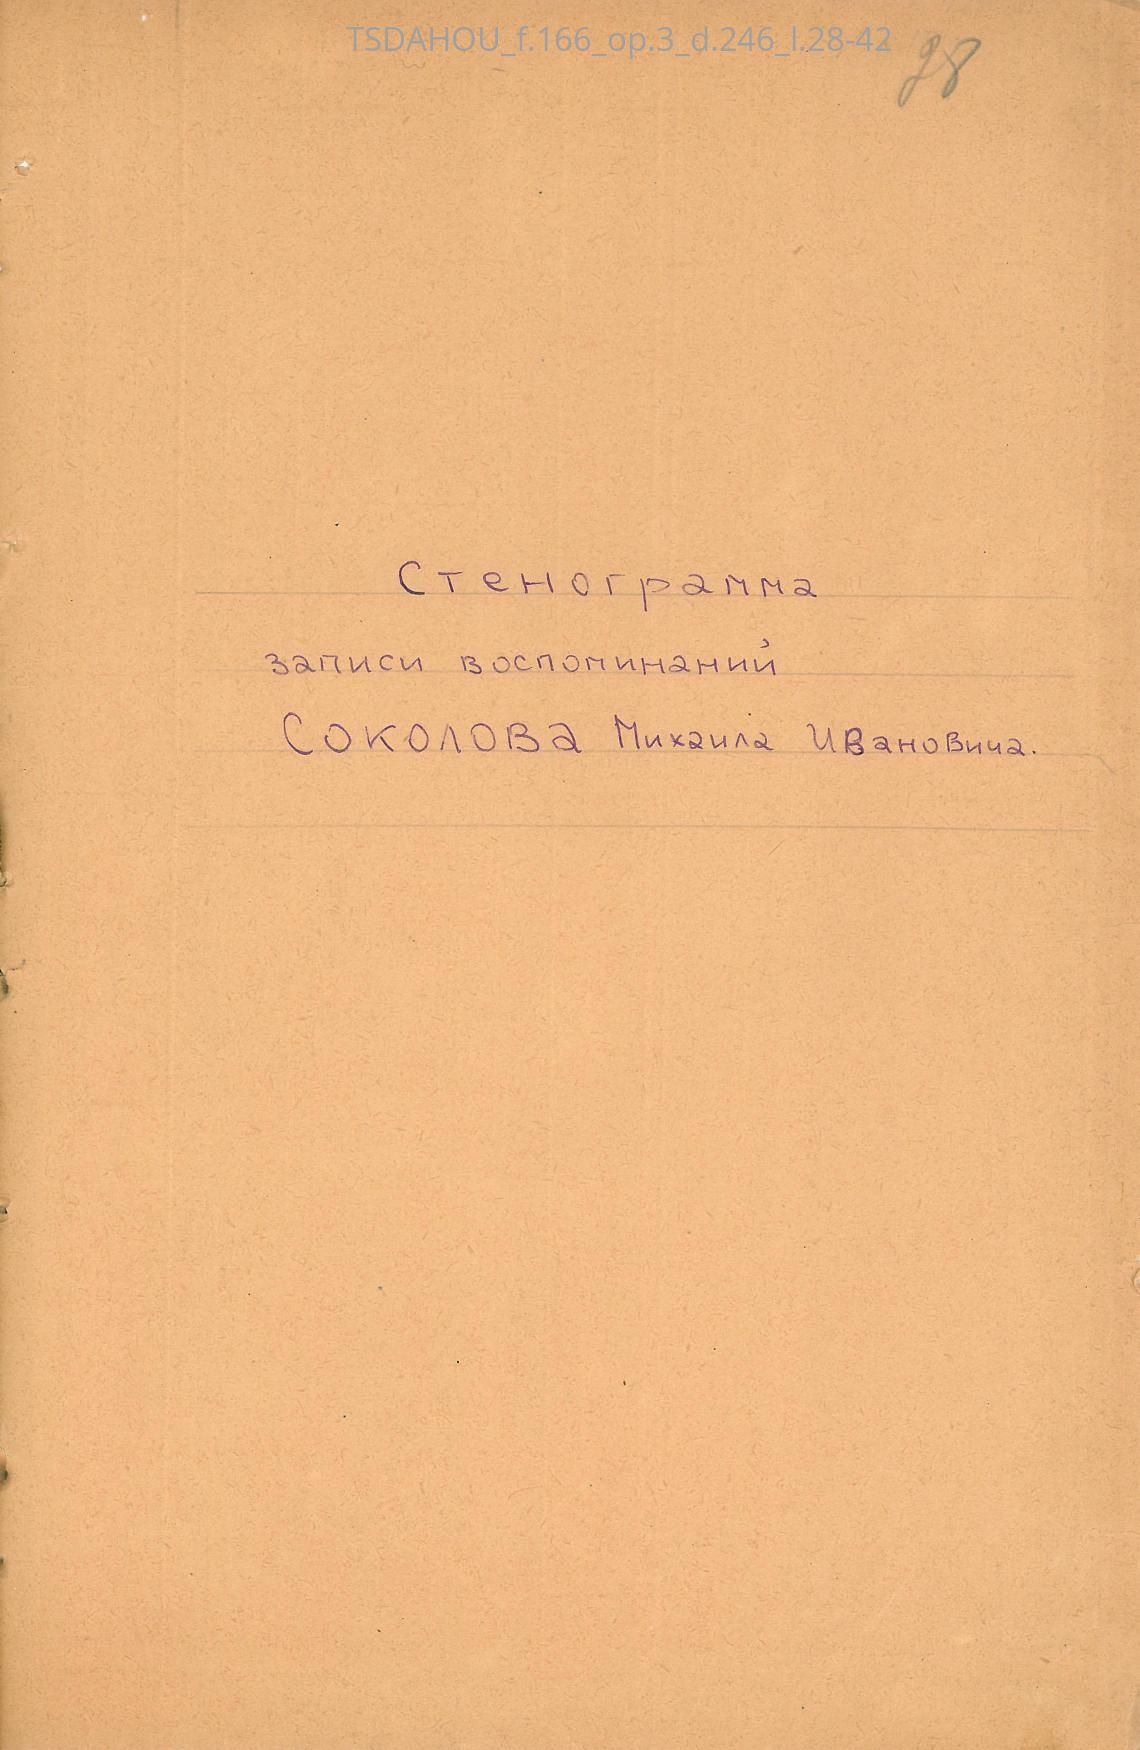 TSDAHOU_f.166_op.3_d.246_l.28-42
28
Стенограмма
записи воспоминаний
СОКОЛОВА Михаила Ивановича.